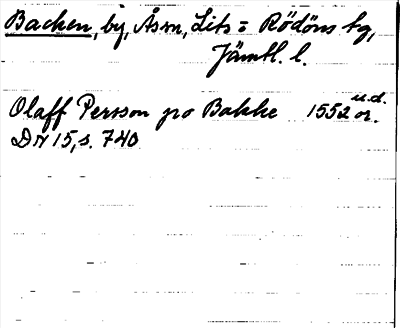 Backen, by, Åsm, Lits = Rödöns tg,
Jämtl. l.
Olaff Persson po Bakke 1552 u.d. or.
DN 15, s. 740